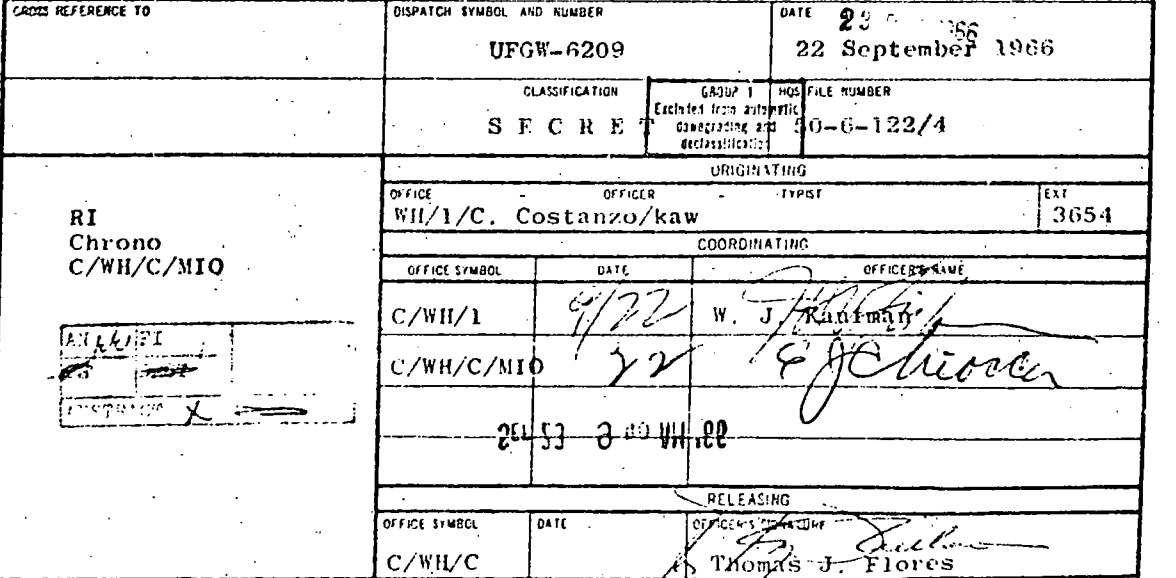 CROSS REFERENCE TO
DISPATCH SYMBOL AND NUMBER
UFGW-6209
DATE
22 September 1966
CLASSIFICATION
SECRET
GROUP 1
Excluded from automatic
downgrading and
declassification
HQS FILE NUMBER
50-6-122/4
ORIGINATING
OFFICE - OFFICER - TYPIST
WH/1/C. Costanzo/kaw
EXT
3654
RI
Chrono
C/WH/C/MIO
COORDINATING
OFFICE SYMBOL
DATE
OFFICER'S NAME
C/WH/1
9/22
W. J. Kaufman
C/WH/C/MIO
22
RELEASING
OFFICE SYMBOL
DATE
OFFICER'S SIGNATURE
C/WH/C
Thomas J. Flores